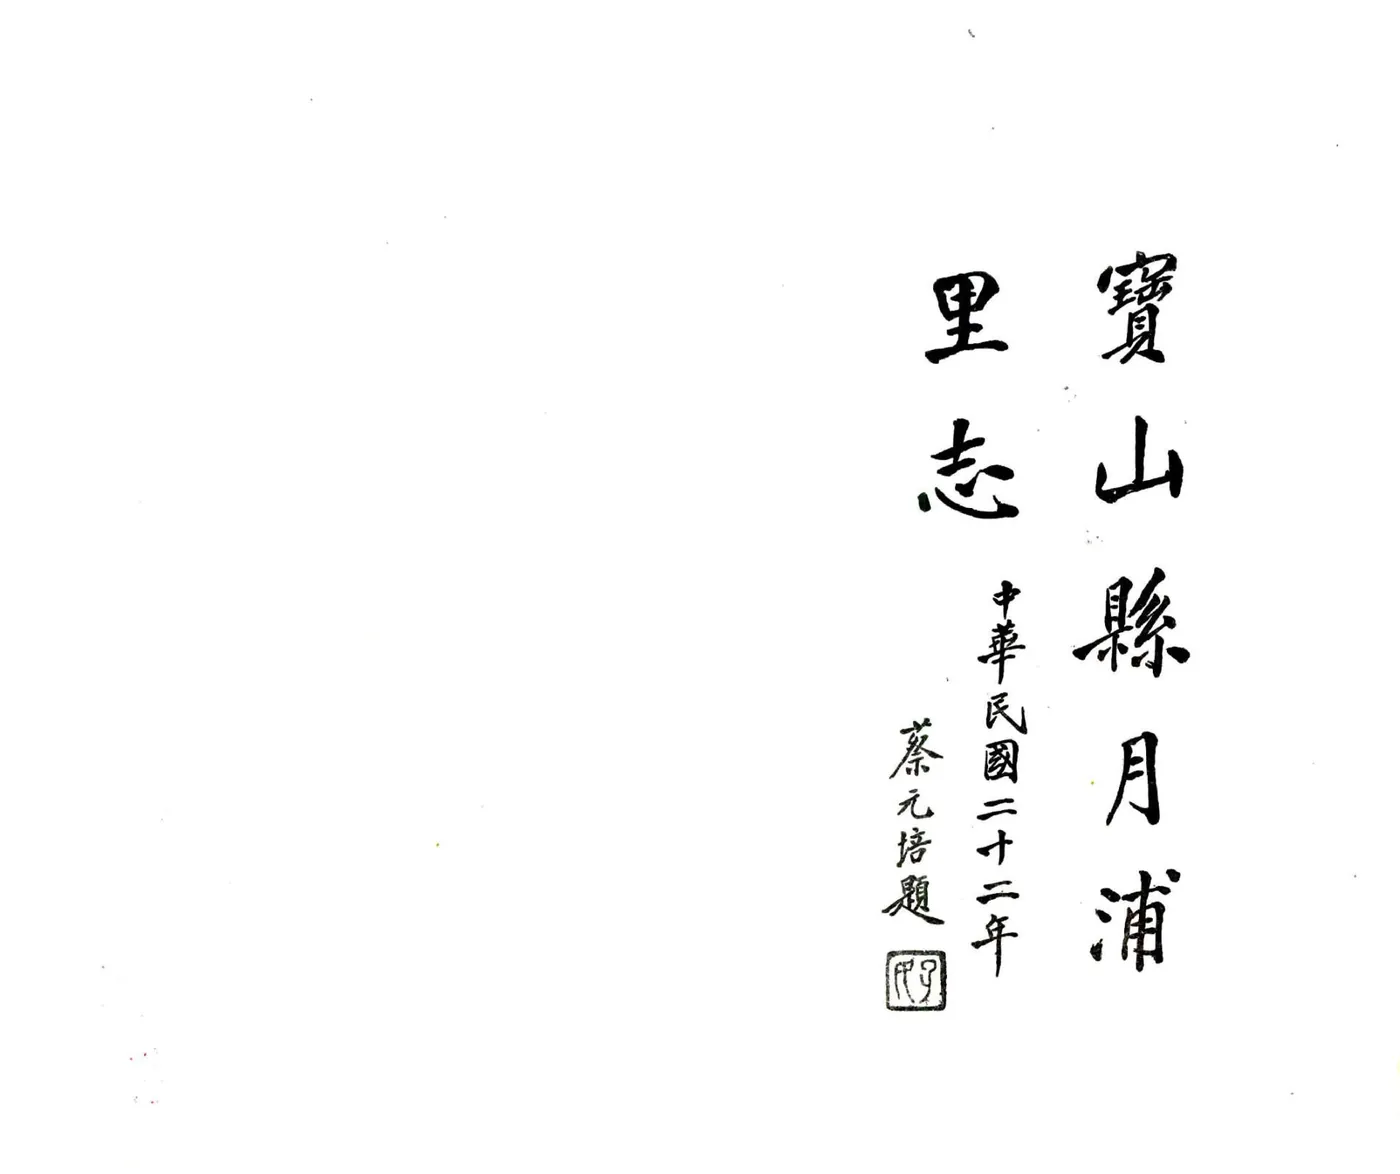 寶山縣月浦
里志
中華民國二十二年
蔡元培題